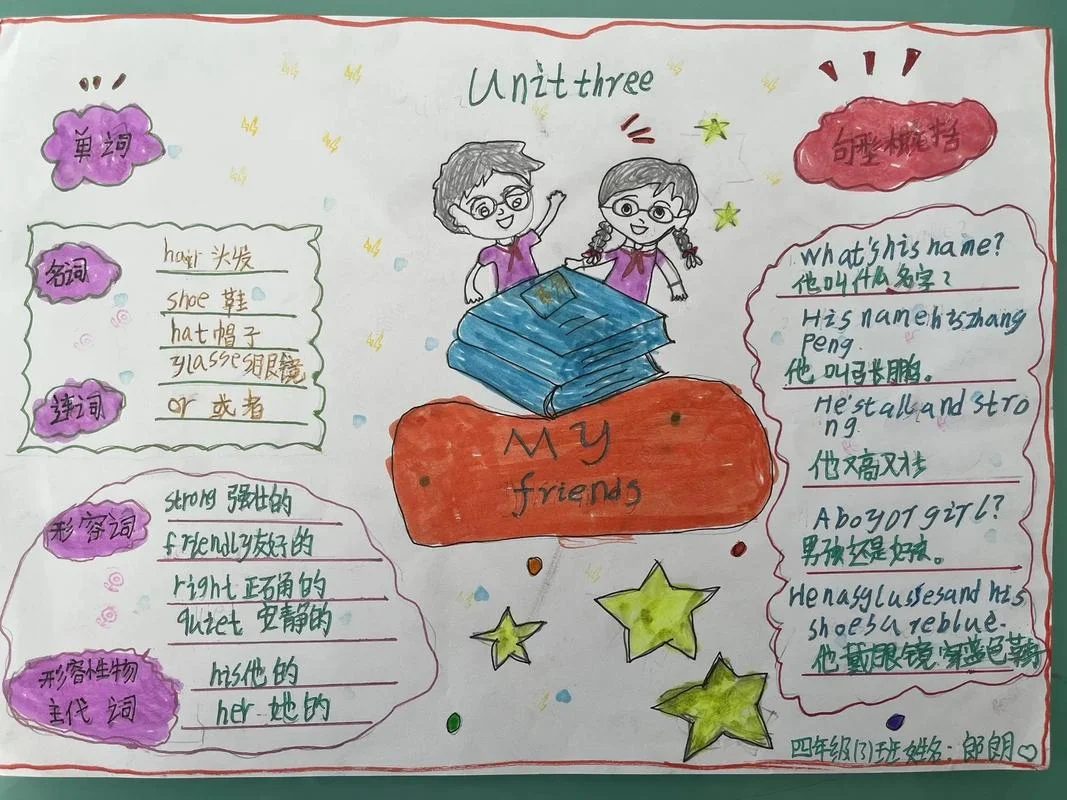 Unit three
单词
名词
hair 头发
shoe 鞋
hat 帽子
glasses 眼镜
连词
or 或者
形容词
strong 强壮的
friendly 友好的
right 正确的
quiet 安静的
形容性物
主代词
his 他的
her 她的
My
friends
句型概括
What's his name?
他叫什么名字?
His name is zhang
peng.
他叫张鹏。
He's tall and stro
ng
他又高又壮
A boy or girl?
男孩还是女孩。
He has glasses and his
shoes are blue.
他戴眼镜穿蓝色鞋
四年级(3)班 姓名: 郎朗